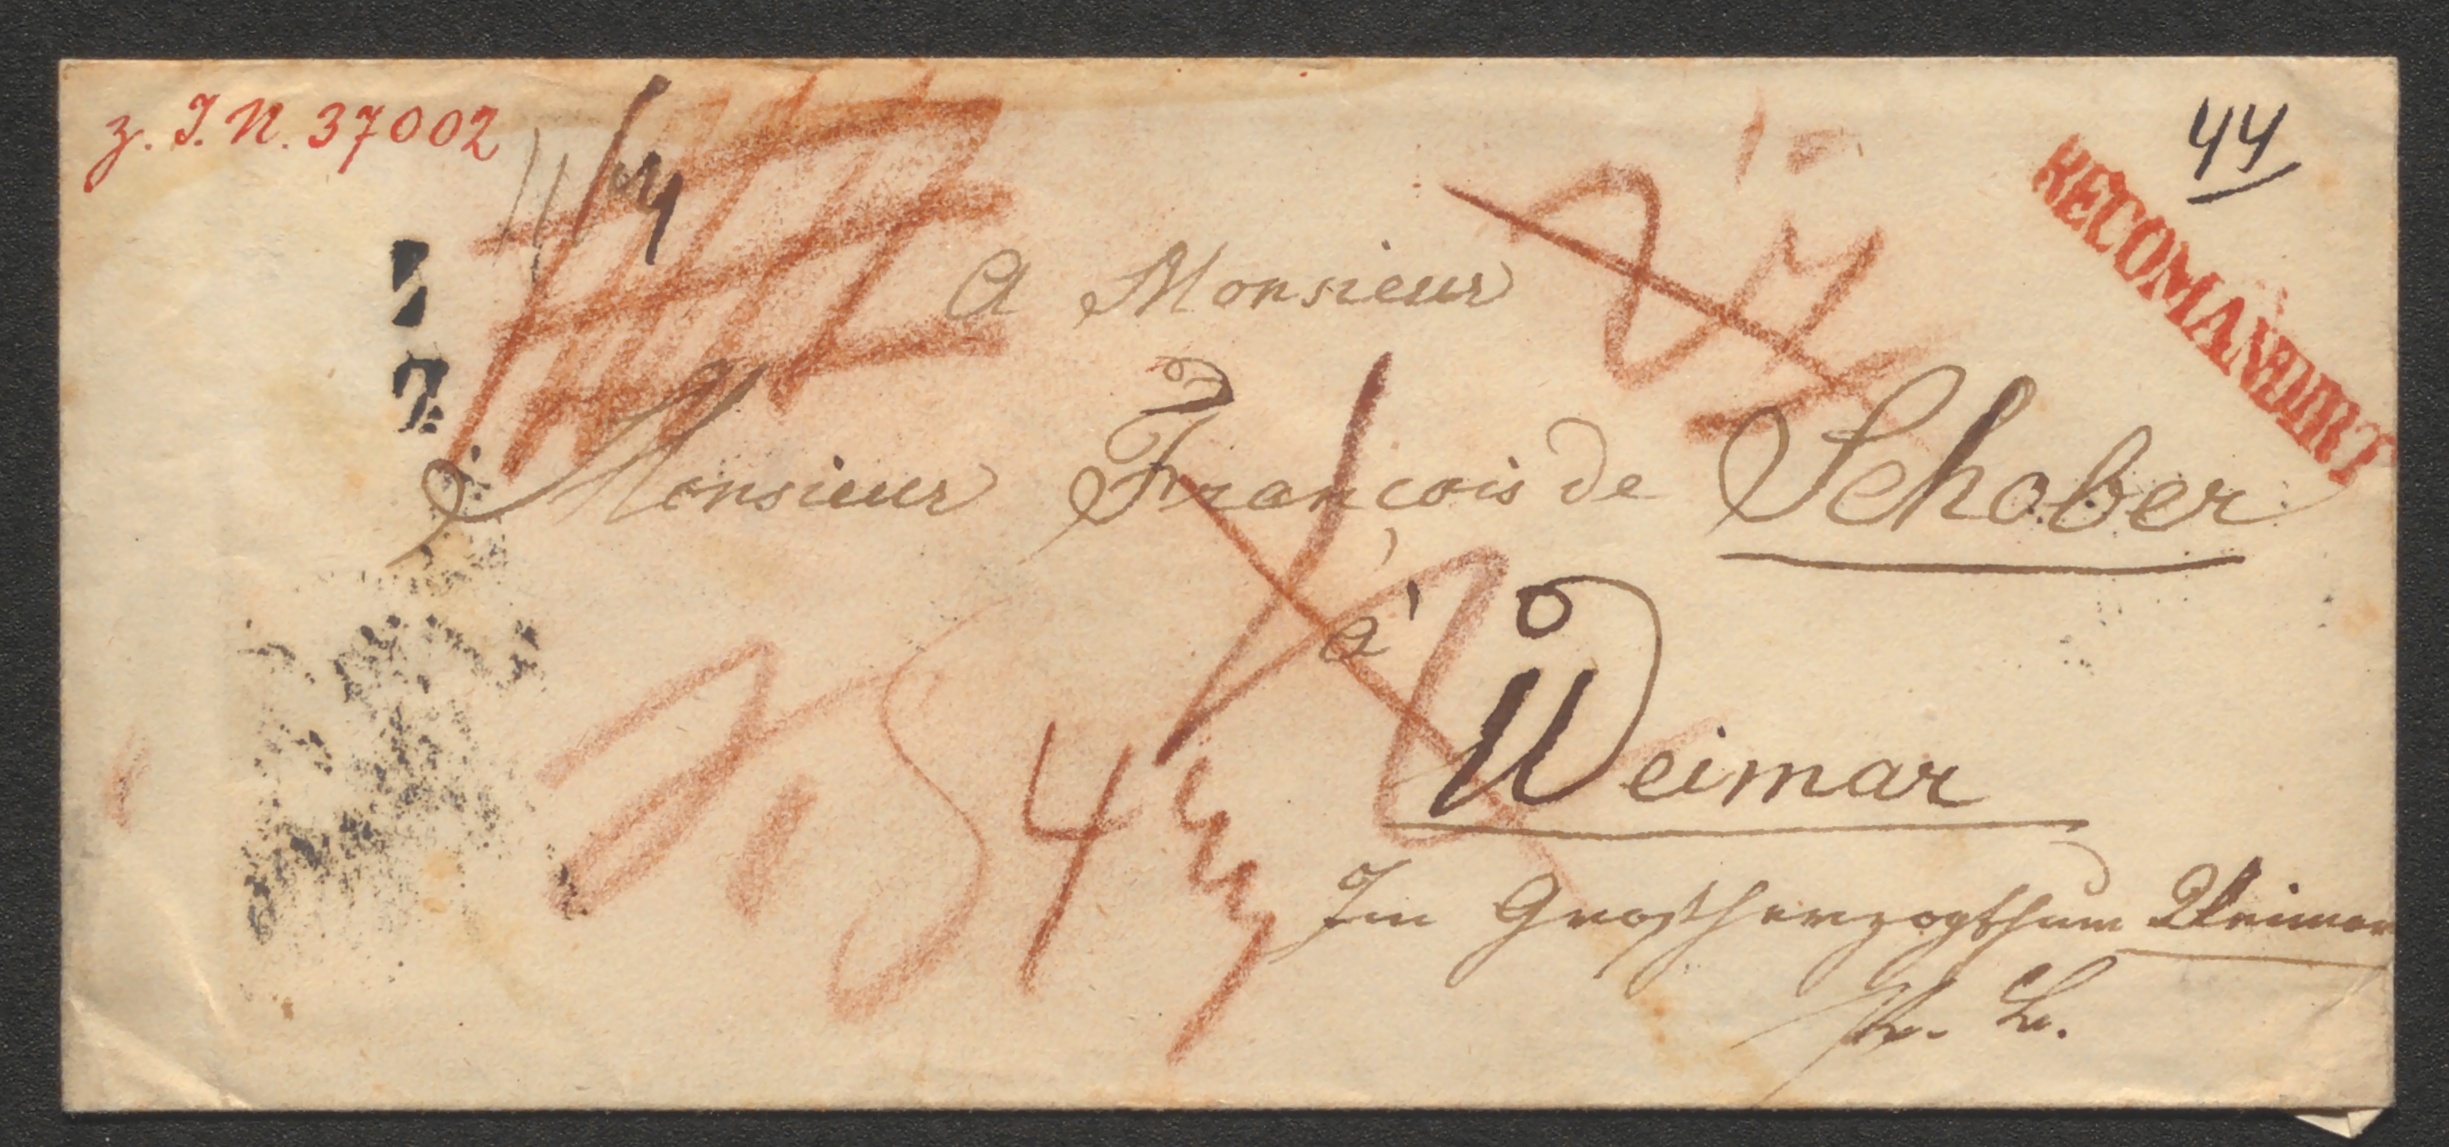 z. I. N. 37002
44
RECOMANDIRT
A Monsieur
Monsieur François de Schober
à
Weimar
Im Grosherzogthum Weimar